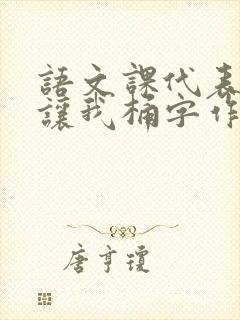 語文課代表
讓我桶字作
唐亨瓊